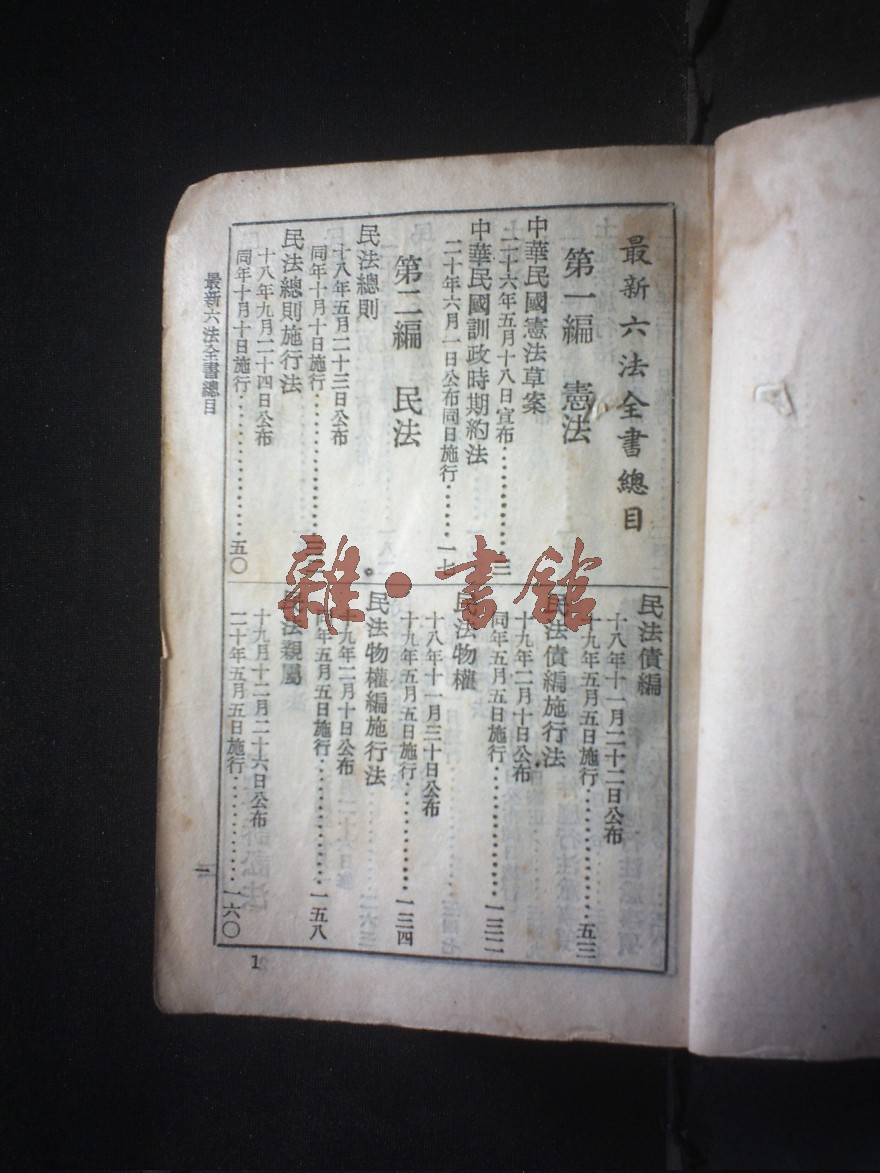 最新六法全書總目
第一編 憲法
中華民國憲法草案
二十六年五月十八日宣布
中華民國訓政時期約法
二十年六月一日公布同日施行……一七
第二編 民法
民法總則
十八年五月二十三日公布
同年十月十日施行
民法總則施行法
十八年九月二十四日公布
同年十月十日施行……五〇
民法債編
十八年十一月二十二日公布
十九年五月五日施行……五三
民法債編施行法
十九年二月十日公布
同年五月五日施行……一三二
民法物權
十八年十一月三十日公布
十九年五月五日施行……一三四
民法物權編施行法
十九年二月十日公布
同年五月五日施行……一五八
民法親屬
十九月十二月二十六日公布
二十年五月五日施行……一六〇
最新六法全書總目
一
1
雜·書館